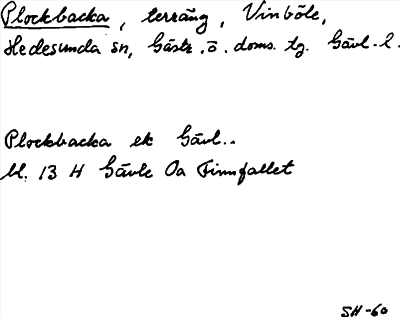 Plockbacka, terräng, Vinböle,
Hedesunda sn, Gästr. ö. doms. tg. Gävl. l.
Plockbacka ek Gävl..
bl. 13 H Gävle Oa Finnfallet
SH-60